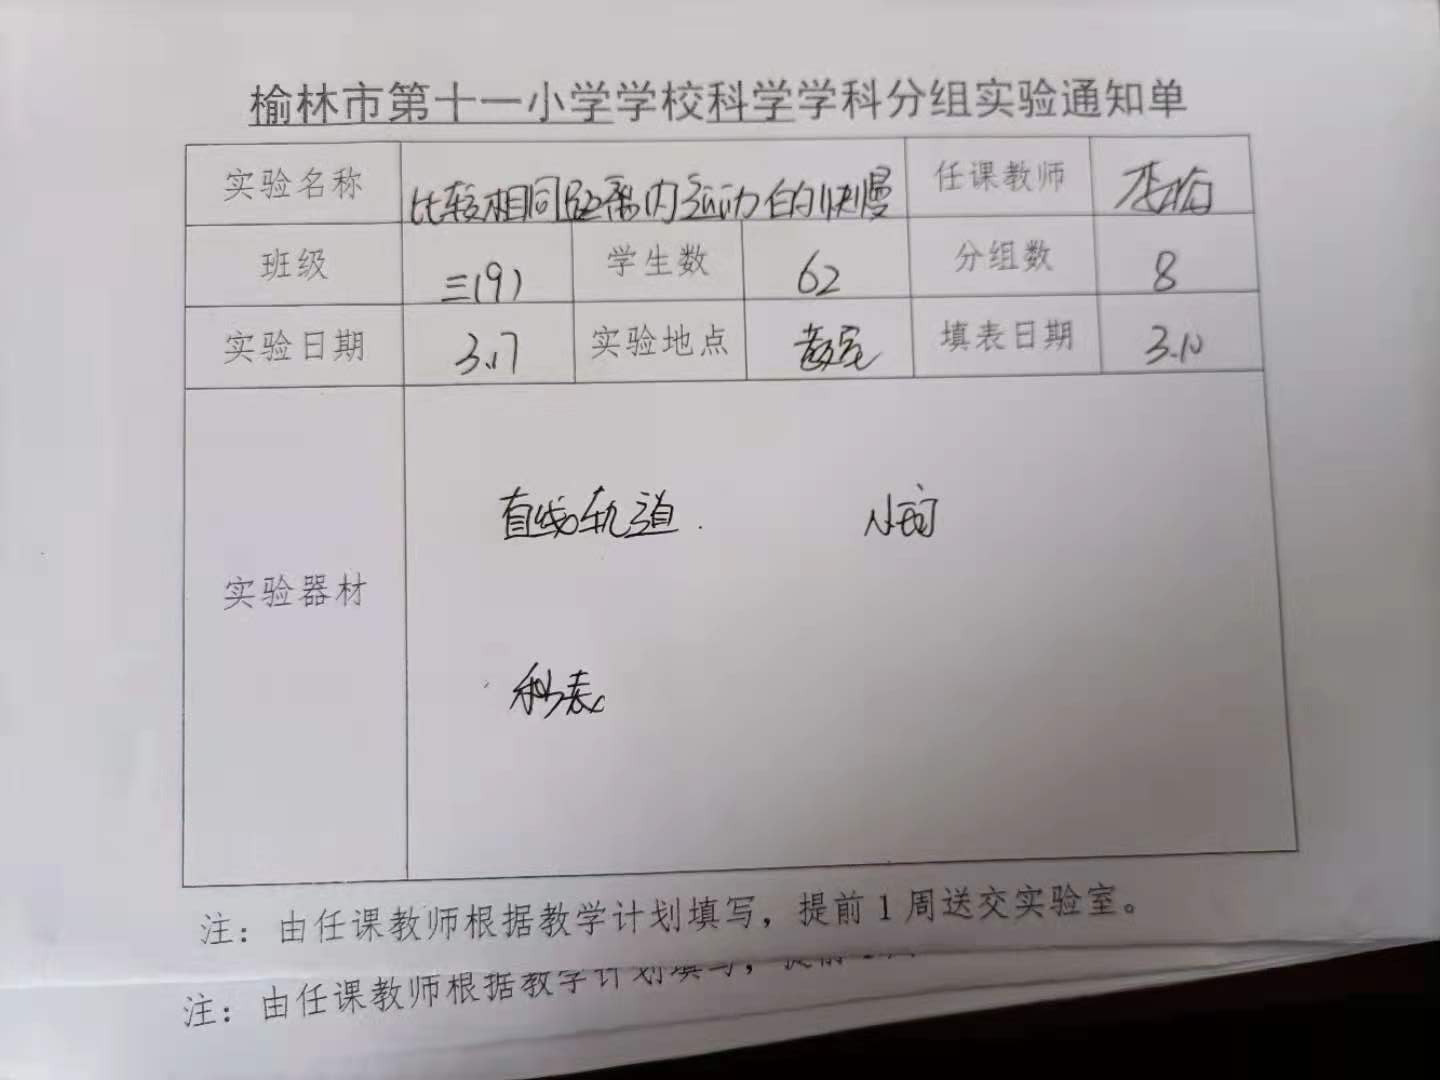 榆林市第十一小学学校科学学科分组实验通知单
实验名称 比较相同距离内运动的快慢 任课教师
班级 三(9) 学生数 62 分组数 8
实验日期 3.17 实验地点 教室 填表日期 3.10
直线轨道.
实验器材
秒表
注：由任课教师根据教学计划填写，提前1周送交实验室。
注：由任课教师根据教学计划填写，提前